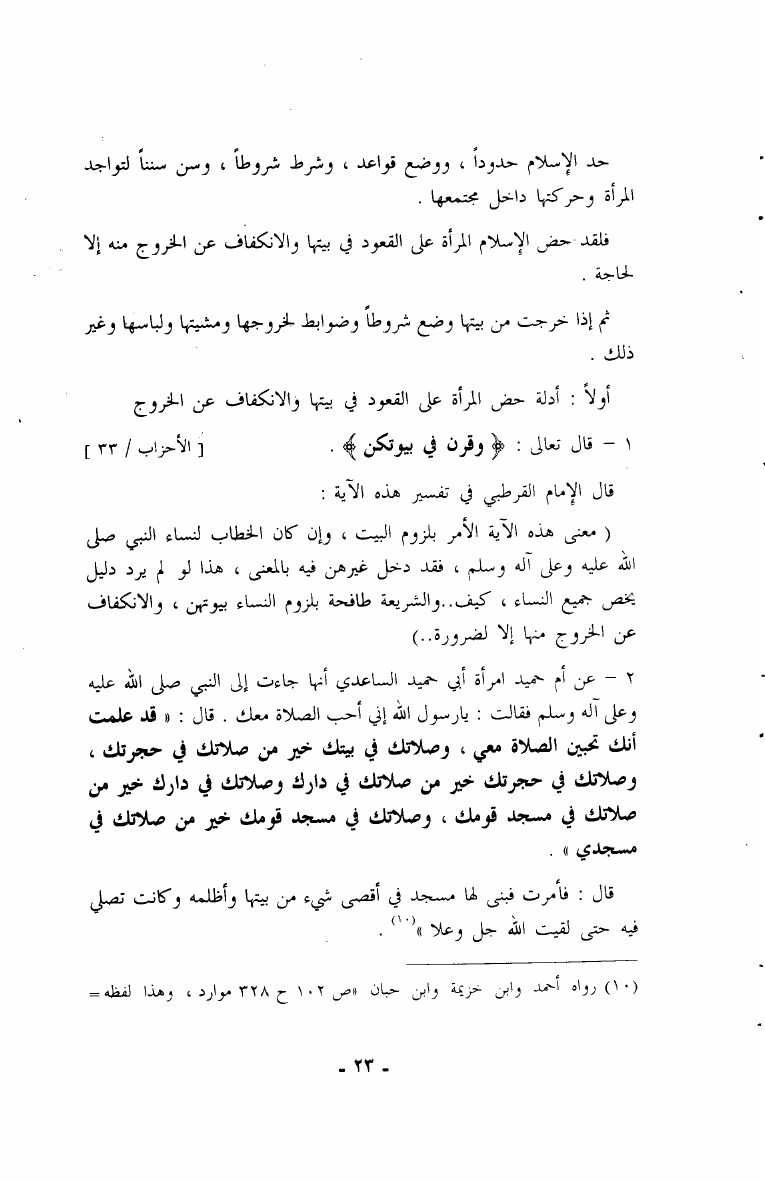 حد الإسلام حدوداً ، ووضع قواعد ، وشرط شروطاً ، وسن سنناً لتواجد
المرأة وحركتها داخل مجتمعها .
فلقد حض الإسلام المرأة على القعود في بيتها والانكفاف عن الخروج منه إلا
لحاجة .
ثم إذا خرجت من بيتها وضع شروطاً وضوابط لخروجها ومشيتها ولباسها وغير
ذلك .
أولاً : أدلة حض المرأة على القعود في بيتها والانكفاف عن الخروج
١ - قال تعالى : ﴿ وقرن في بيوتكن ﴾ . [ الأحزاب / ٣٣ ]
قال الإمام القرطبي في تفسير هذه الآية :
( معنى هذه الآية الأمر بلزوم البيت ، وإن كان الخطاب لنساء النبي صلى
الله عليه وعلى آله وسلم ، فقد دخل غيرهن فيه بالمعنى ، هذا لو لم يرد دليل
يخص جميع النساء ، كيف..والشريعة طافحة بلزوم النساء بيوتهن ، والانكفاف
عن الخروج منها إلا لضرورة..)
٢ - عن أم حميد امرأة أبي حميد الساعدي أنها جاءت إلى النبي صلى الله عليه
وعلى آله وسلم فقالت : يارسول الله إني أحب الصلاة معك . قال : « قد علمت
أنك تحبين الصلاة معي ، وصلاتك في بيتك خير من صلاتك في حجرتك ،
وصلاتك في حجرتك خير من صلاتك في دارك وصلاتك في دارك خير من
صلاتك في مسجد قومك ، وصلاتك في مسجد قومك خير من صلاتك في
مسجدي » .
قال : فأمرت فبنى لها مسجد في أقصى شيء من بيتها وأظلمه وكانت تصلي
فيه حتى لقيت الله جل وعلا »(١٠) .
(١٠) رواه أحمد وابن خزيمة وابن حبان «ص ١٠٢ ح ٣٢٨ موارد ، وهذا لفظه=
- ٢٣ -